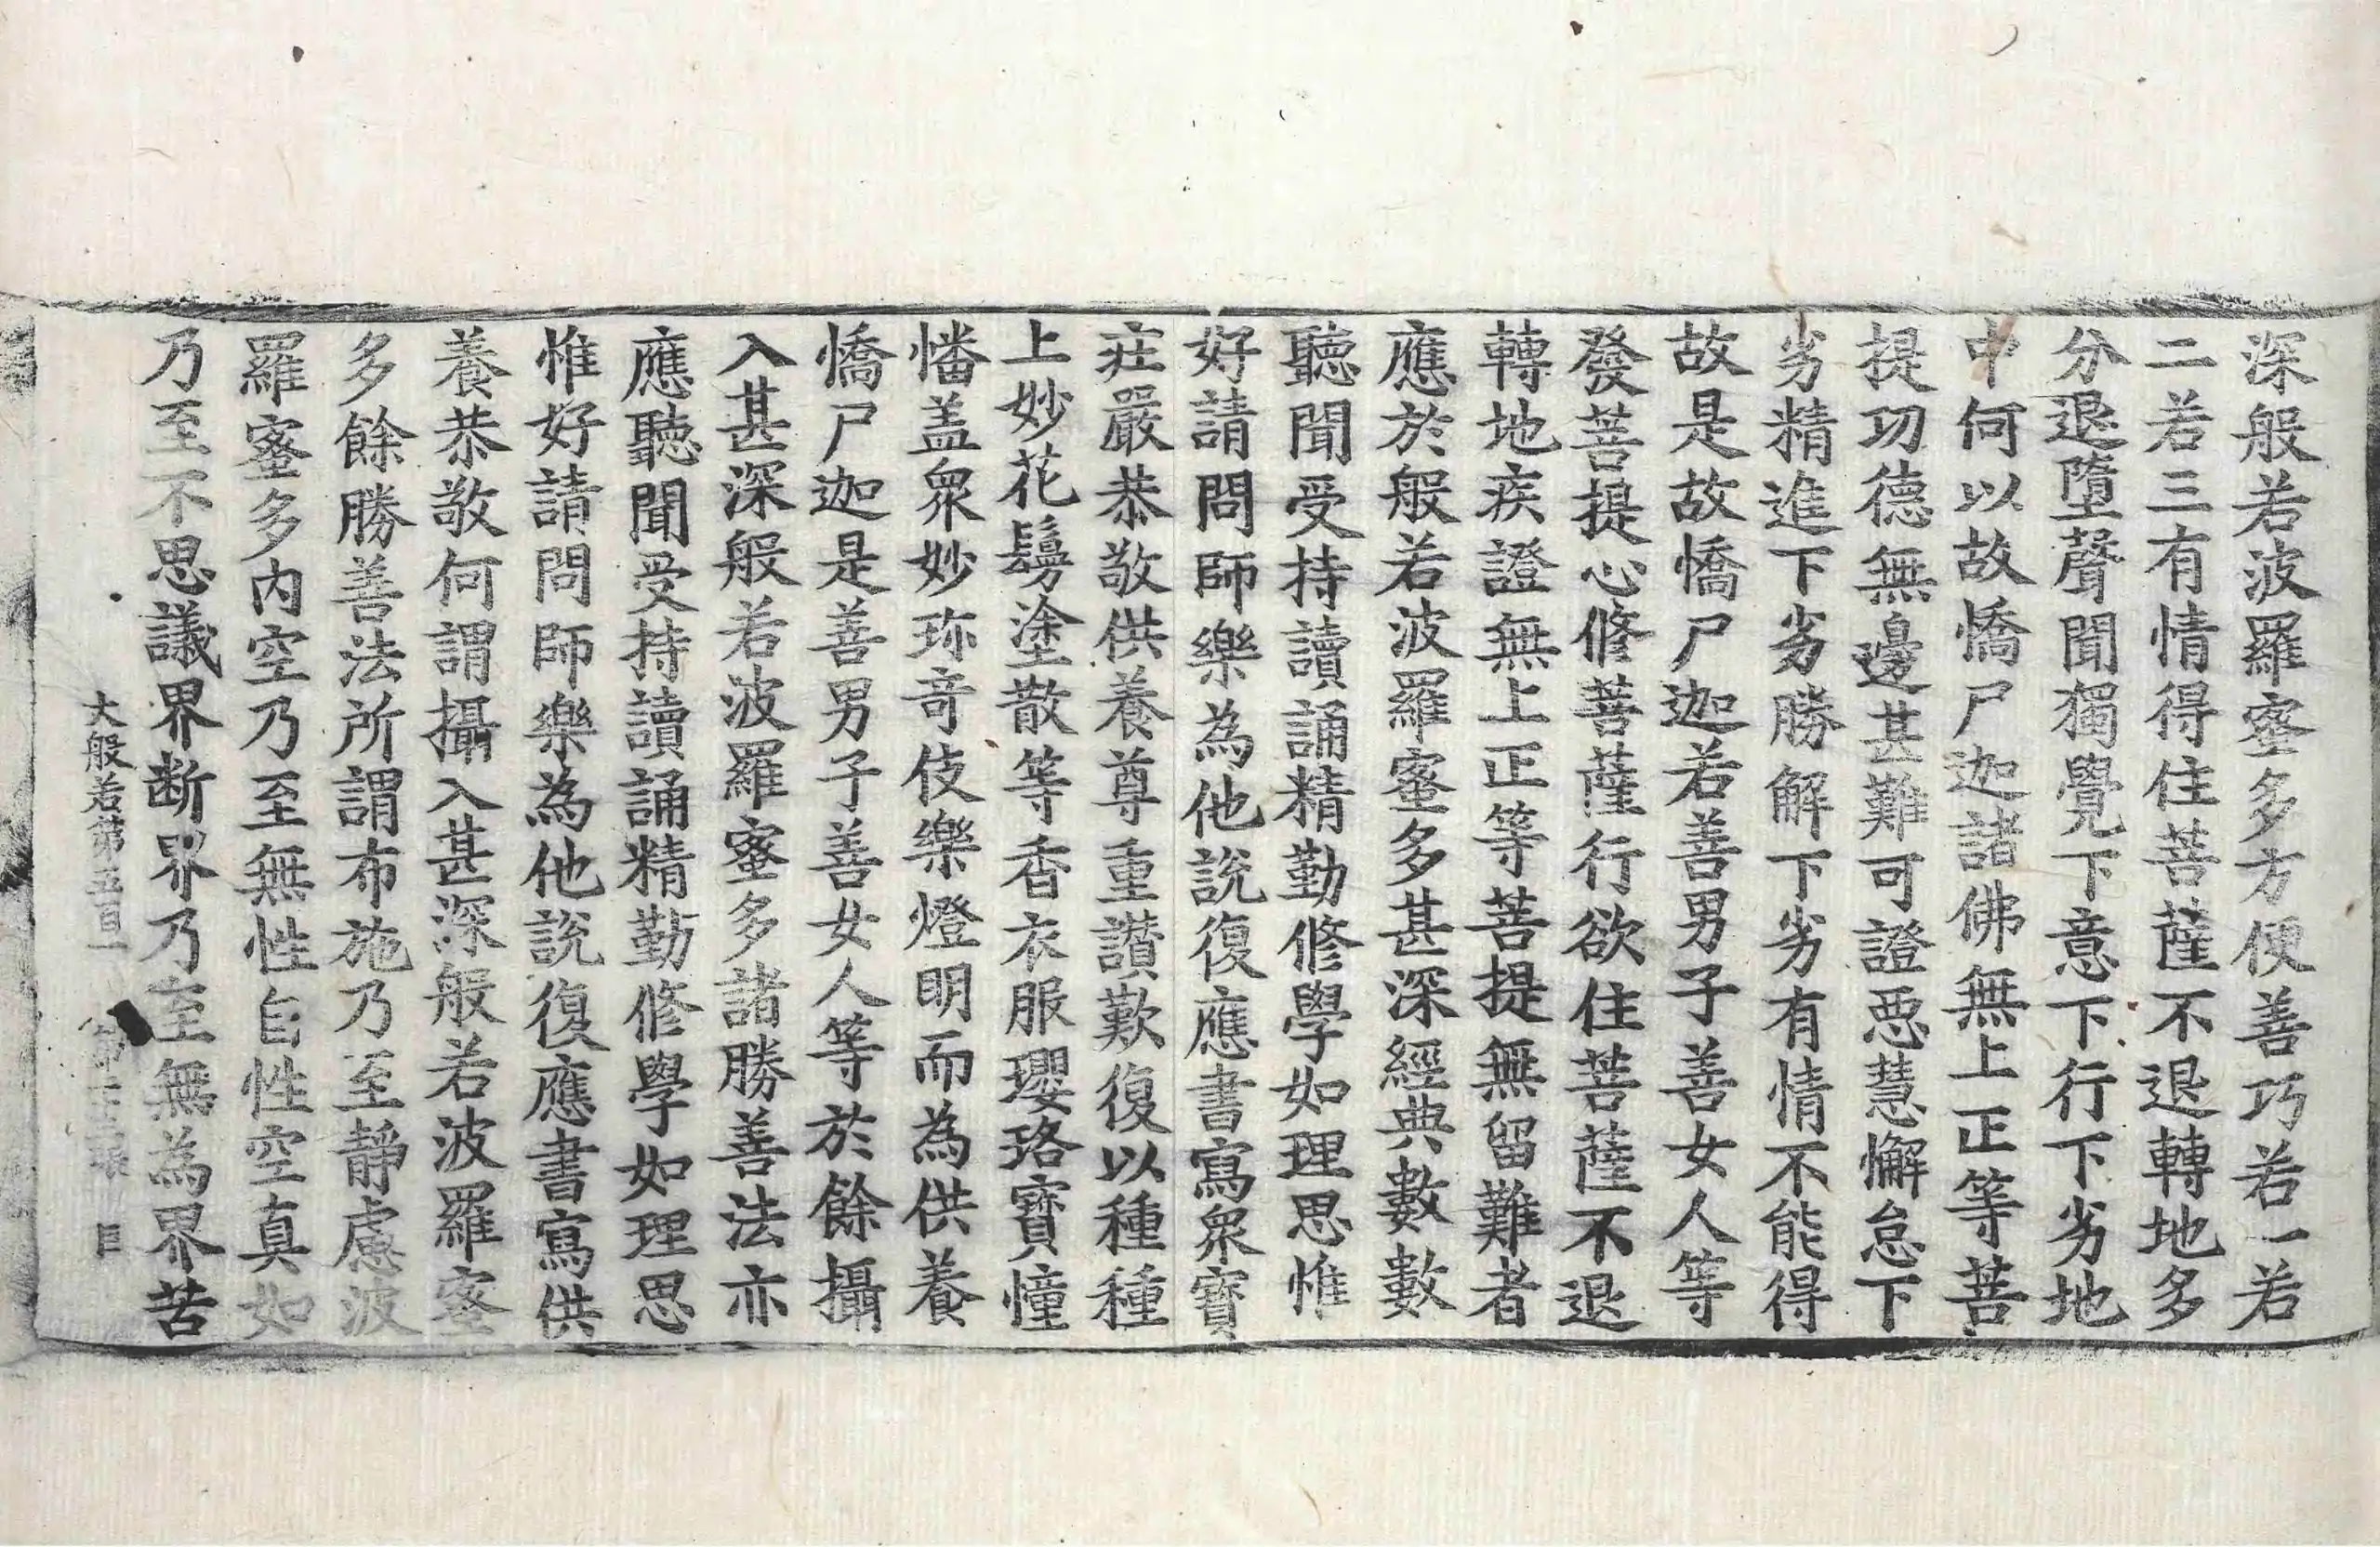 深般若波羅蜜多方便善巧若一若
二若三有情得住菩薩不退轉地多
分退墮聲聞獨覺下意下行下劣地
中何以故憍尸迦諸佛無上正等菩
提功德無邊甚難可證惡慧懈怠下
劣精進下劣勝解下劣有情不能得
故是故憍尸迦若善男子善女人等
發菩提心修菩薩行欲住菩薩不退
轉地疾證無上正等菩提無留難者
應於般若波羅蜜多甚深經典數數
聽聞受持讀誦精勤修學如理思惟
好請問師樂為他說復應書寫衆寶
莊嚴恭敬供養尊重讃歎復以種種
上妙花鬘塗散等香衣服瓔珞寶幢
幡盖衆妙珎奇伎樂燈明而為供養
憍尸迦是善男子善女人等於餘攝
入甚深般若波羅蜜多諸勝善法亦
應聽聞受持讀誦精勤修學如理思
惟好請問師樂為他說復應書寫供
養恭敬何謂攝入甚深般若波羅蜜
多餘勝善法所謂布施乃至靜慮波
羅蜜多內空乃至無性自性空真如
乃至不思議界断界乃至無為界苦
大般若第五百一